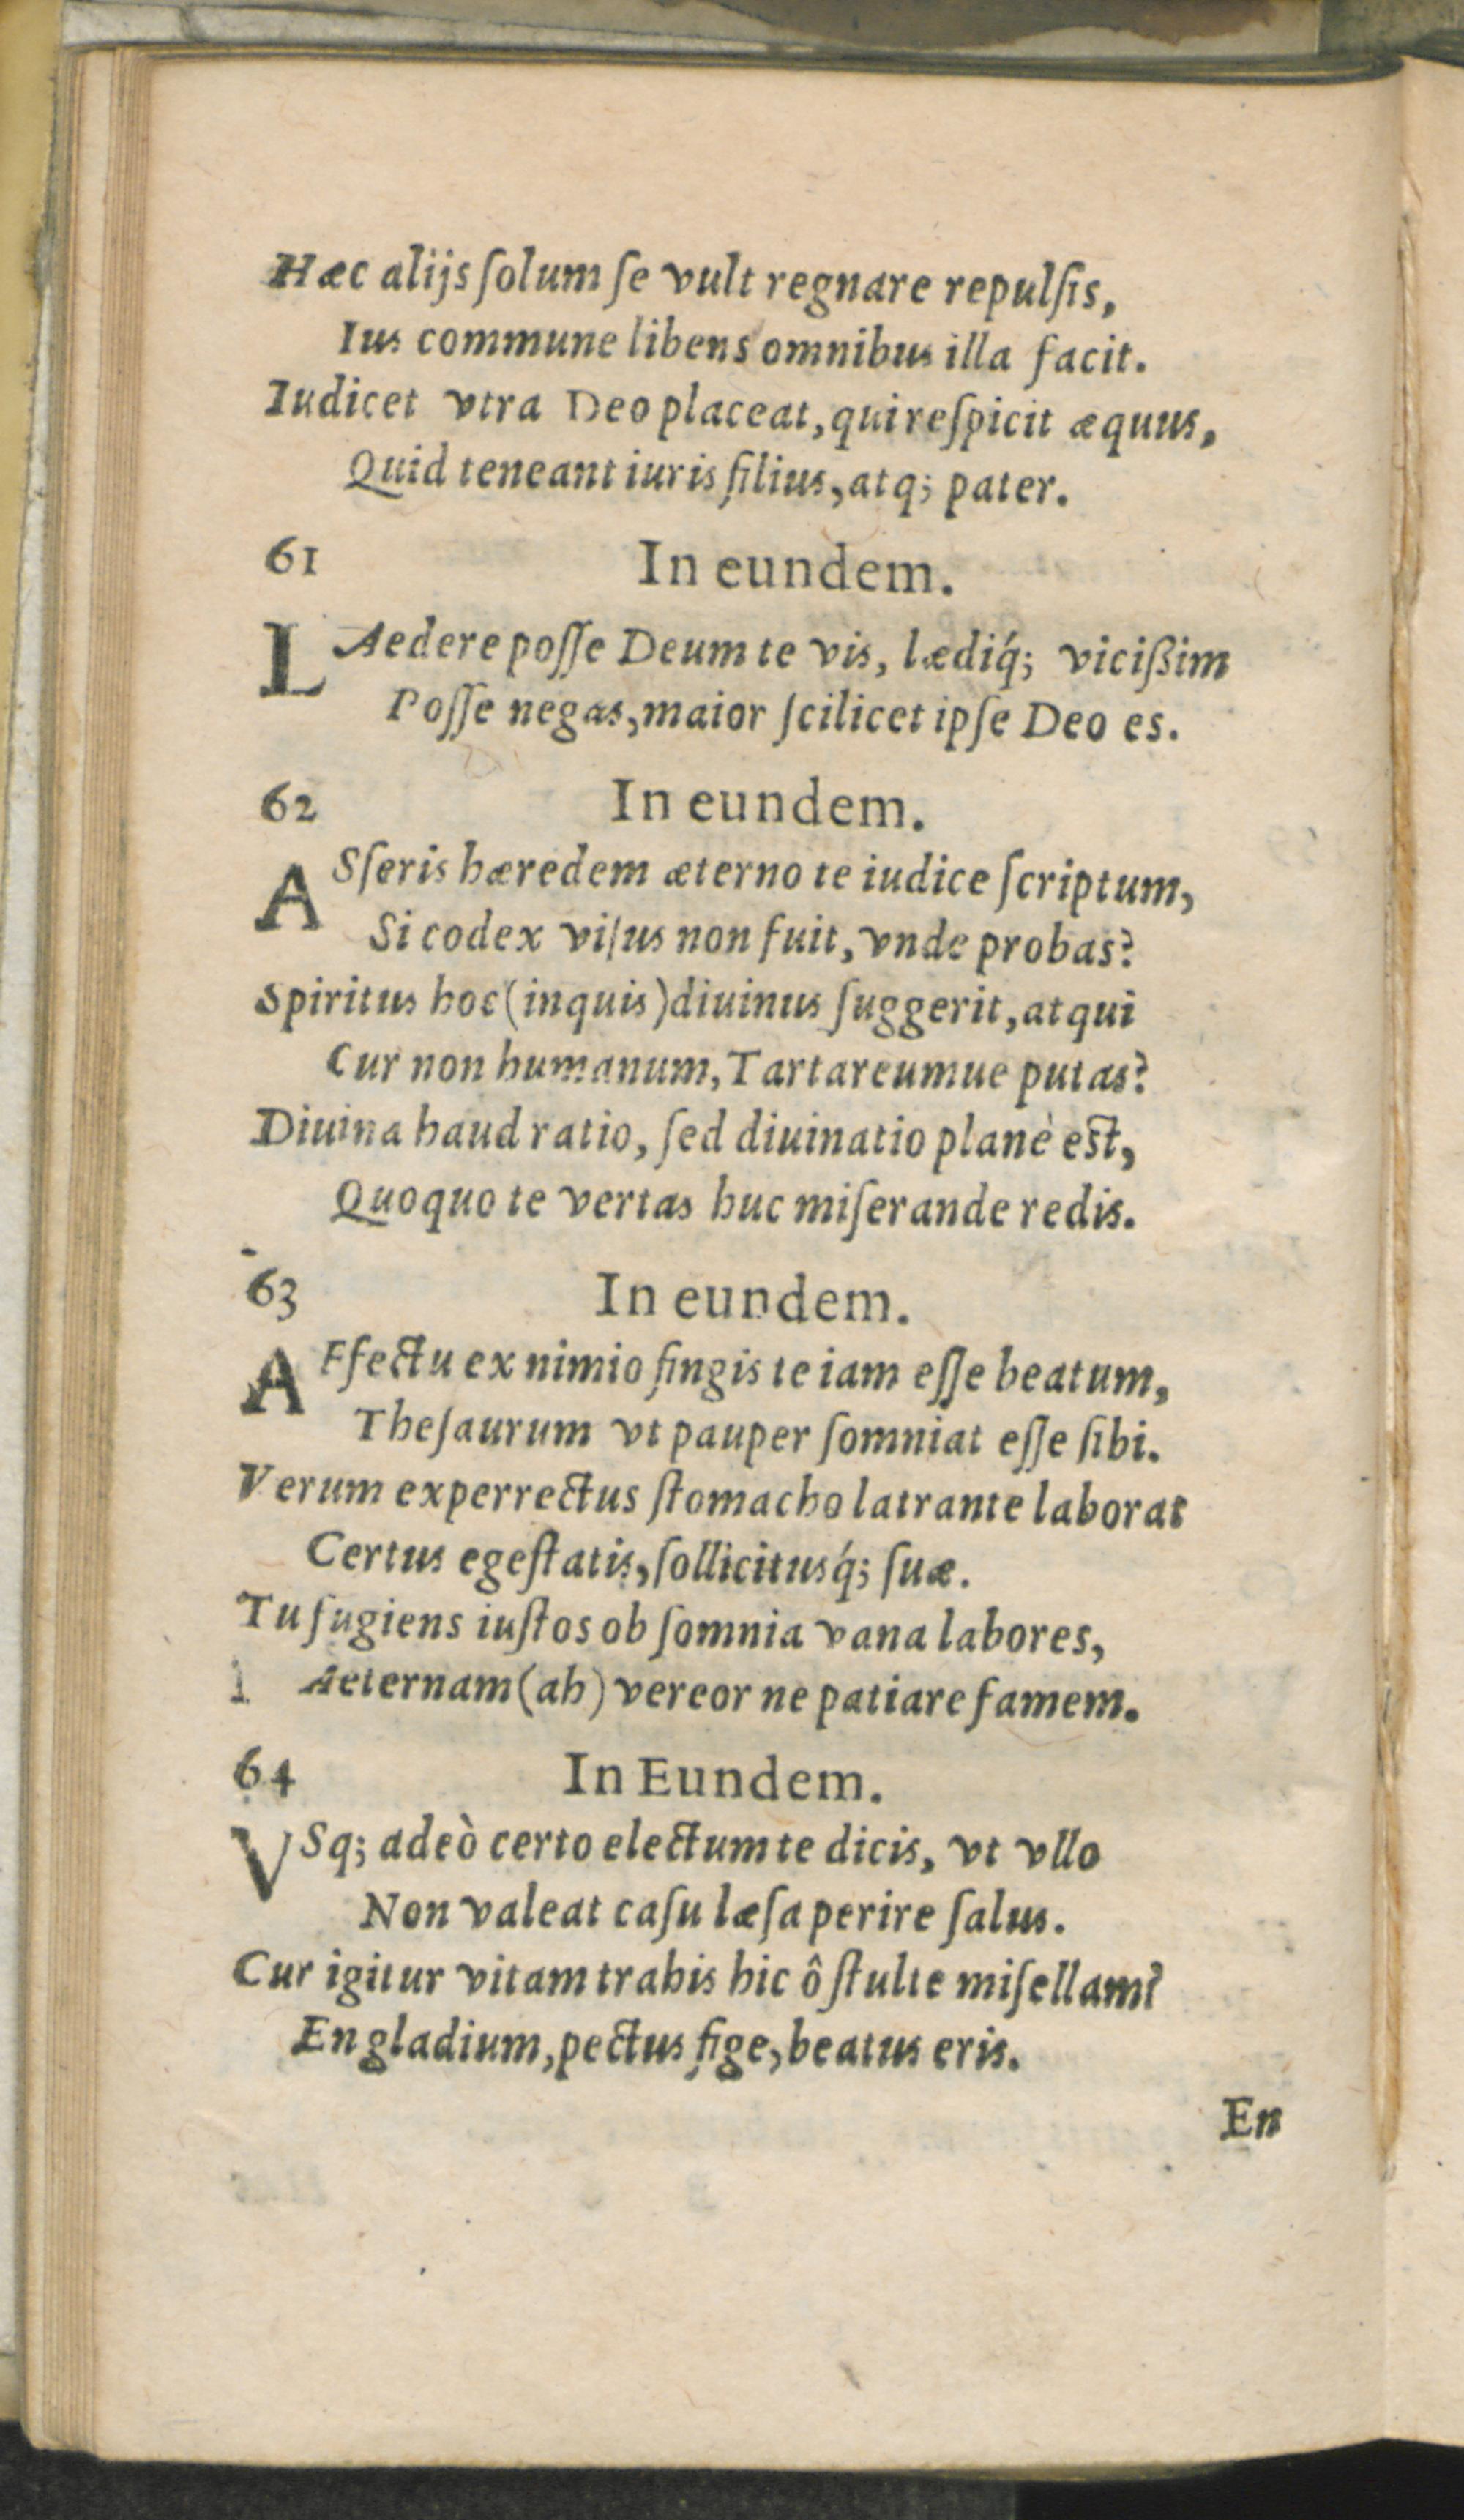 Hæc alijs ſolum ſe vult regnare repulſis,
Ius commune libens omnibus illa facit.
Iudicet vtra Deo placeat, qui reſpicit æquus,
Quid teneant iuris filius, atq; pater.
61 In eundem.
LAedere poſſe Deum te vis, lædiq́; viciſſim
Poſſe negas, maior ſcilicet ipſe Deo es.
62 In eundem.
ASſeris hæredem æterno te iudice ſcriptum,
Si codex viſus non fuit, vnde probas?
Spiritus hoc (inquis) diuinus ſuggerit, atqui
Cur non humanum, Tartareumue putas?
Diuina haud ratio, ſed diuinatio planè est,
Quoquo te vertas huc miſerande redis.
63 In eundem.
AFfectu ex nimio fingis te iam eſſe beatum,
Theſaurum vt pauper ſomniat eſſe ſibi.
Verum experrectus ſtomacho latrante laborat
Certus egeſtatis, ſollicitusq́; ſuæ.
Tu fugiens iuſtos ob ſomnia vana labores,
Aeternam (ah) vereor ne patiare famem.
64 In Eundem.
VSq; adeò certo electum te dicis, vt vllo
Non valeat caſu læſa perire ſalus.
Cur igitur vitam trahis hic ô ſtulte miſellam?
En gladium, pectus fige, beatus eris.
En